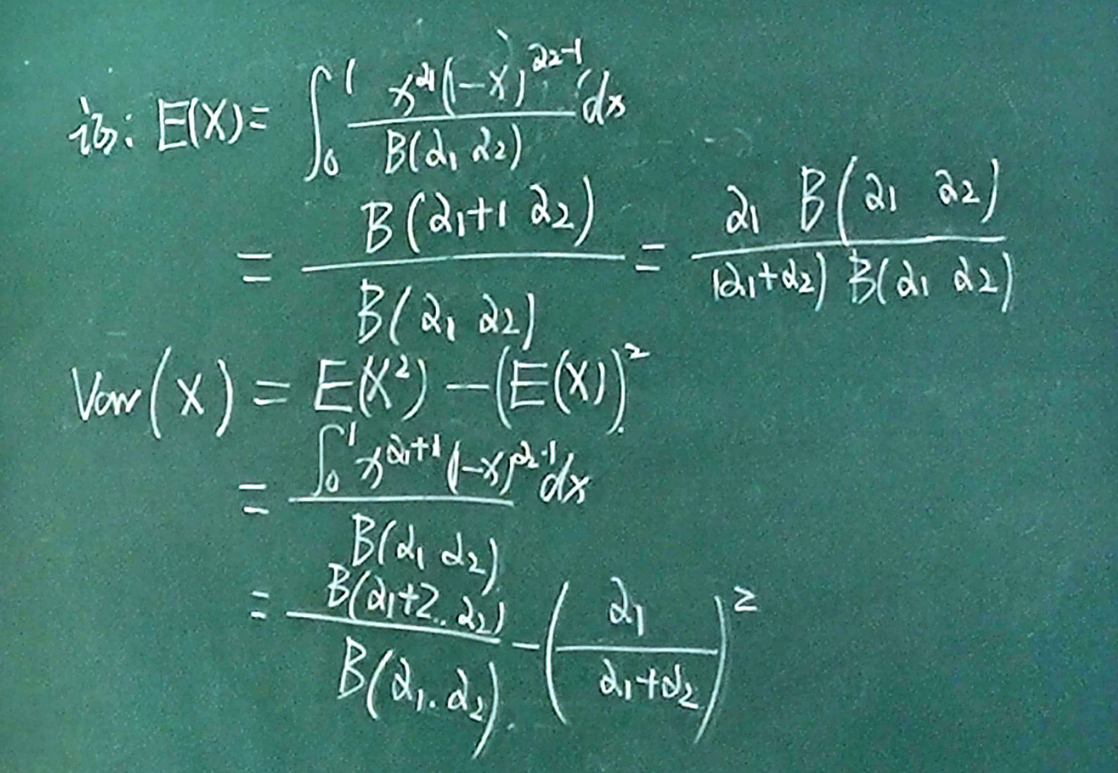 证: E(X) = ∫₀¹ x^α₁(1-x)^(α₂-1) / B(α₁ α₂) dx
= B(α₁+1 α₂) / B(α₁ α₂) = α₁ B(α₁ α₂) / (α₁+α₂) B(α₁ α₂)
Var(X) = E(X²) - (E(X))²
= ∫₀¹ x^(α₁+1) (1-x)^(α₂-1) dx / B(α₁ α₂)
= B(α₁+2..α₂) / B(α₁.α₂) - (α₁ / α₁+α₂)²